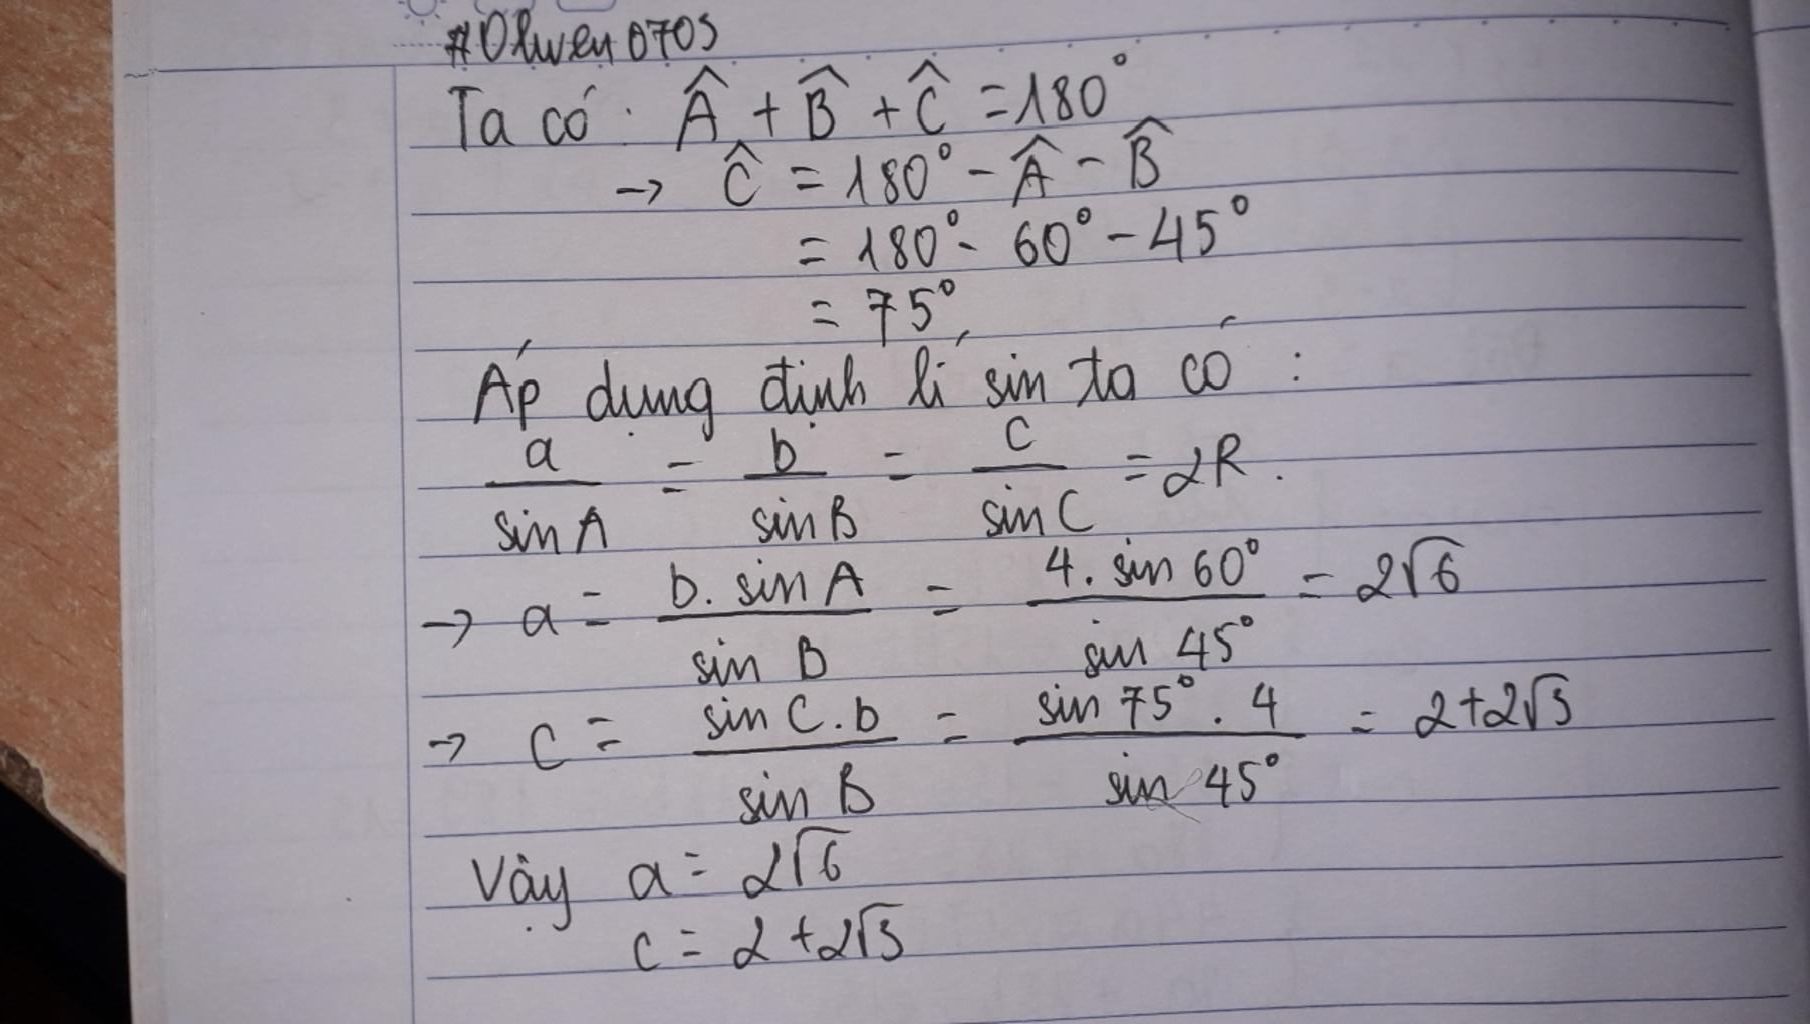 #Olwen0705
Ta có: Â + B̂ + Ĉ = 180°
→ Ĉ = 180° - Â - B̂
= 180° - 60° - 45°
= 75°
Áp dụng định lí sin ta có:
a/sin A = b/sin B = c/sin C = 2R.
→ a = b. sin A/sin B = 4. sin 60°/sin 45° = 2√6
→ c = sin C.b/sin B = sin 75°. 4/sin 45° = 2+2√3
Vậy a = 2√6
c = 2 + 2√3